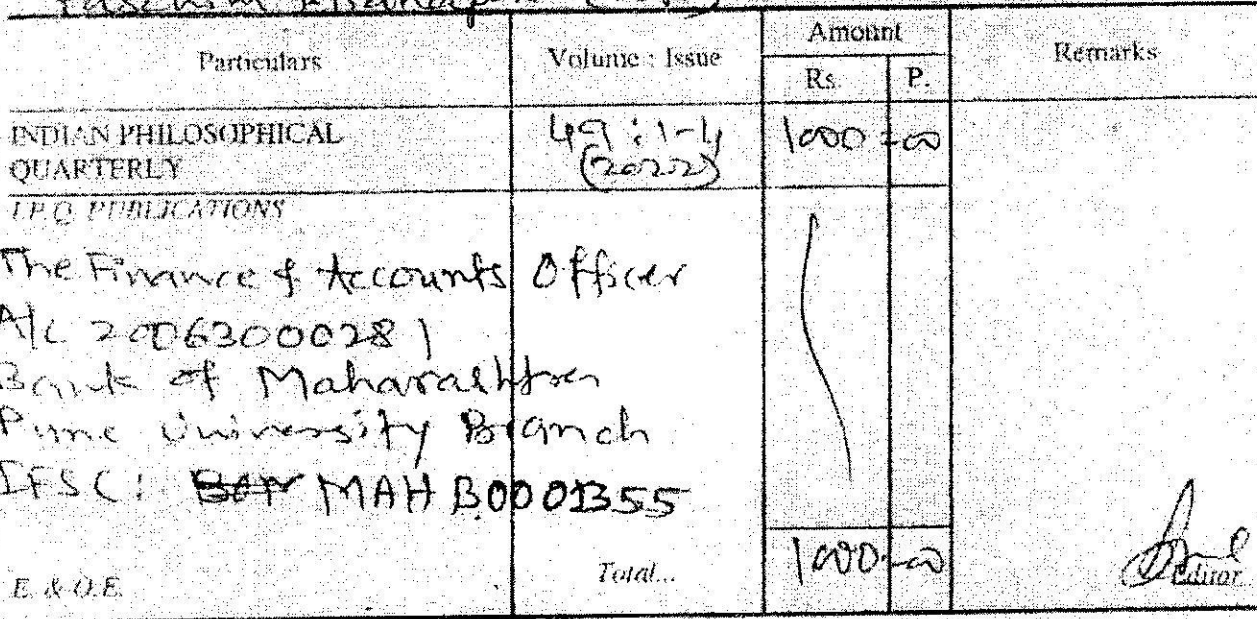 Particulars Volume : Issue Amount Remarks
Rs. P.
INDIAN PHILOSOPHICAL 49 : 1-4 1000 = 00
QUARTERLY (2022)
I.P.Q. PUBLICATIONS
The Finance & Accounts Officer
A/C 20063000281
Bank of Maharashtra
Pune University Branch
IFSC: MAHB0001355
E. & O.E. Total... 1000=00 Editor